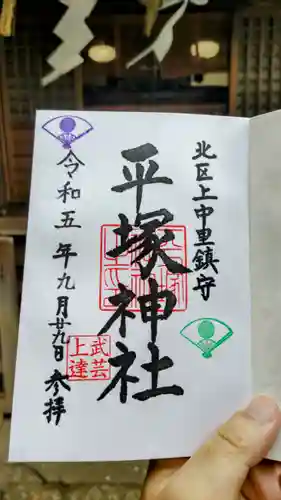 北区上中里鎮守
平塚神社
令和五年九月廿九日参拝
武芸
上達